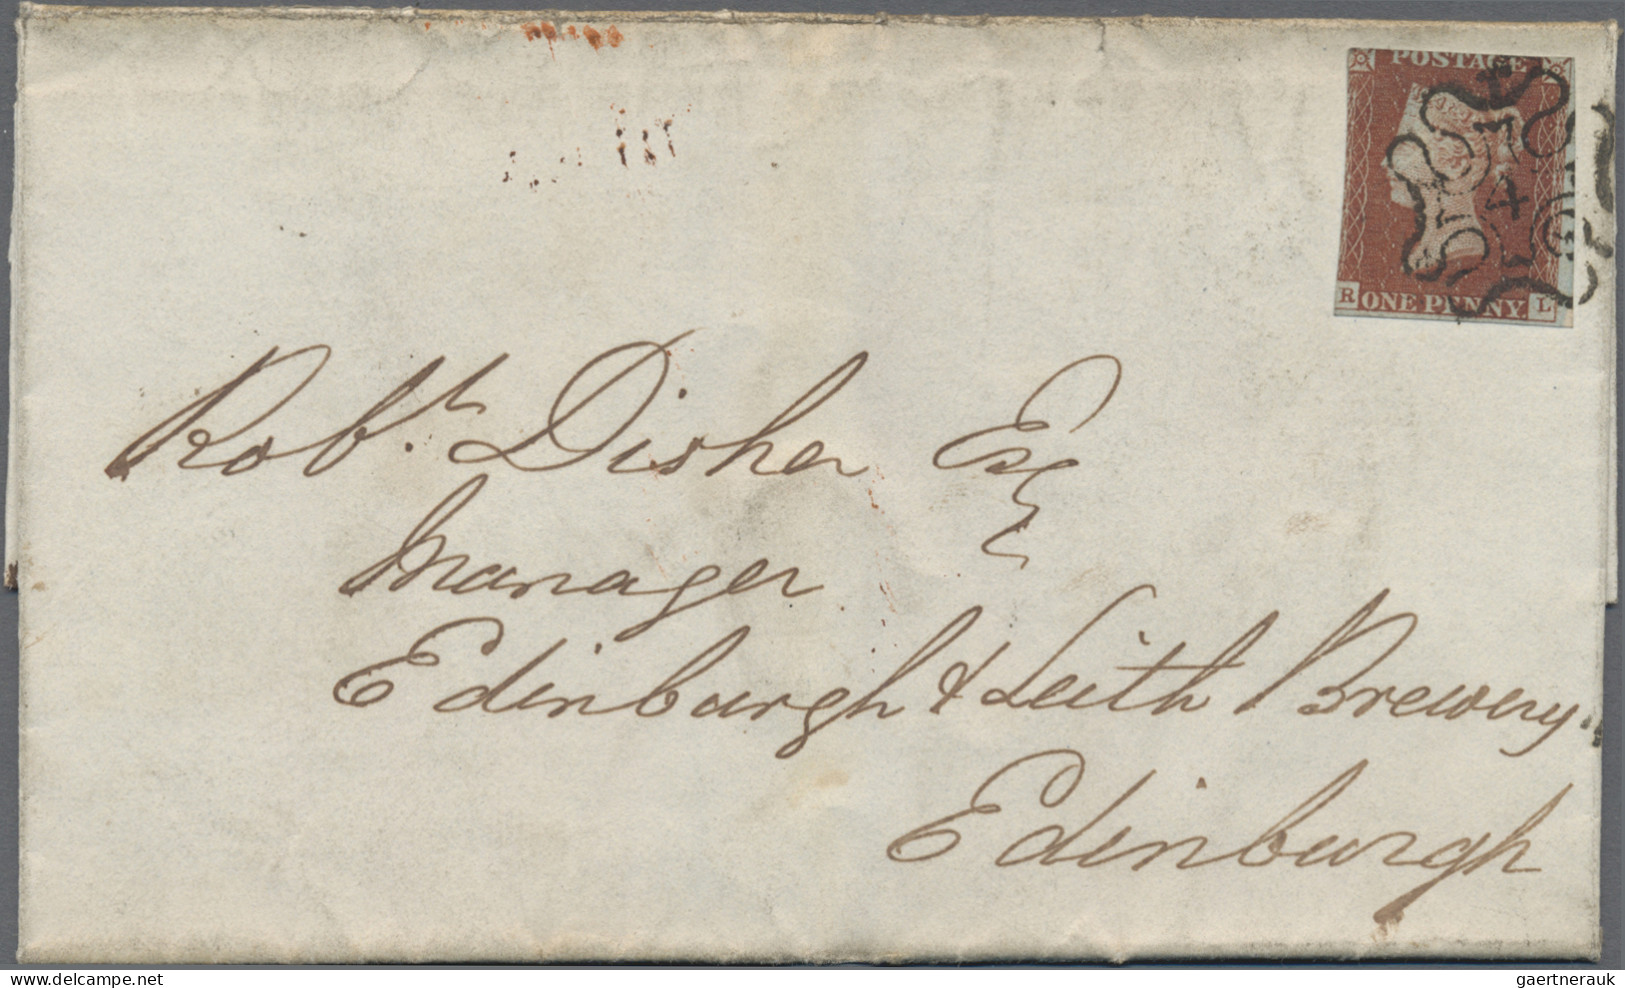 POSTAGE
4
R ONE PENNY. L
Robt. Disher Esq
Manager
Edinburgh & Leith Brewery
Edinburgh
www.delcampe.net
gaertnerauk